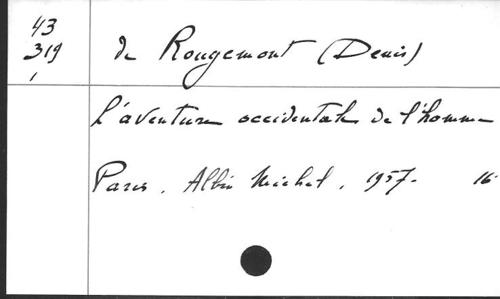 43
319
de Rougemont (Denis)
L'aventure occidentale de l'homme
Paris. Albin Michel. 1957- 16